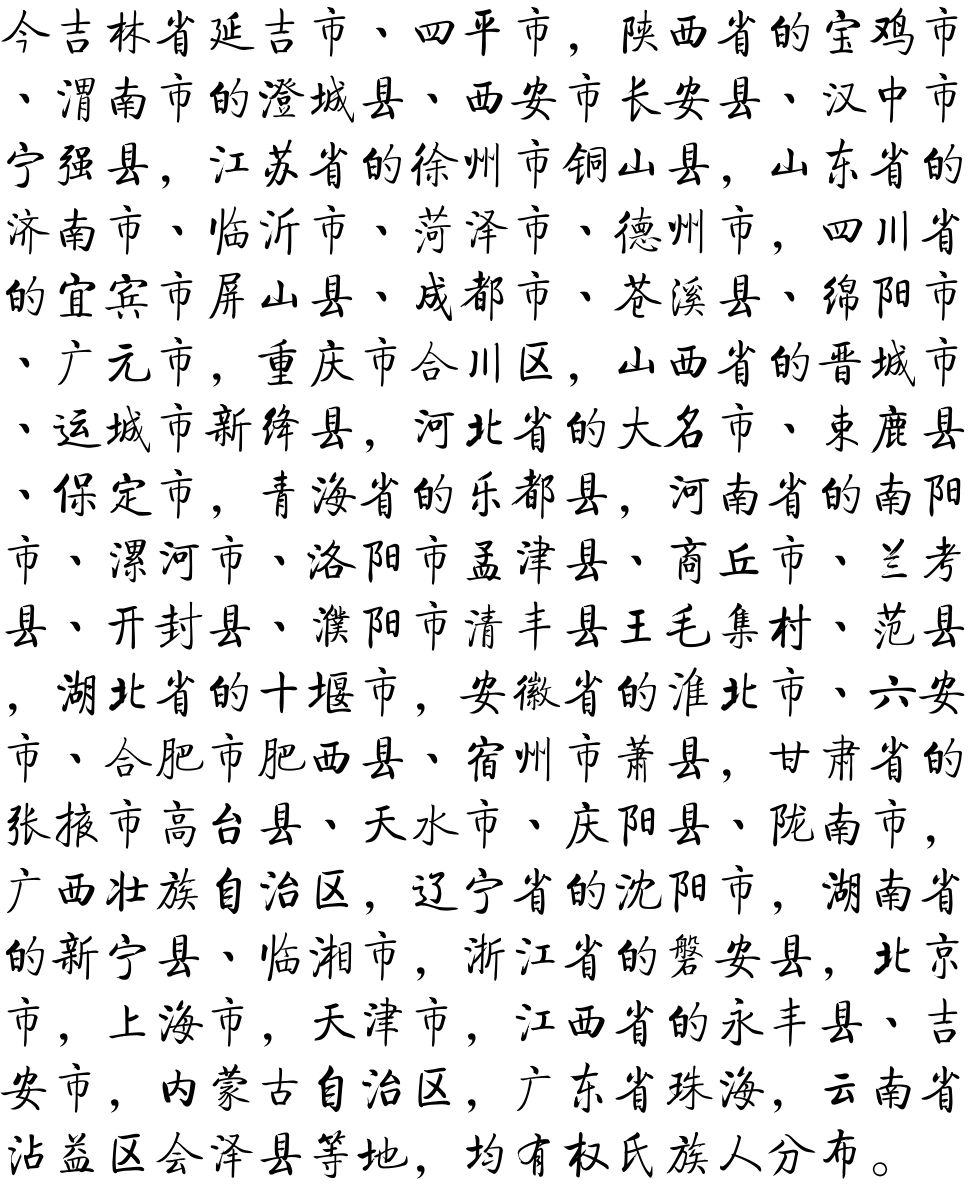 今吉林省延吉市、四平市，陕西省的宝鸡市
、渭南市的澄城县、西安市长安县、汉中市
宁强县，江苏省的徐州市铜山县，山东省的
济南市、临沂市、菏泽市、德州市，四川省
的宜宾市屏山县、成都市、苍溪县、绵阳市
、广元市，重庆市合川区，山西省的晋城市
、运城市新绛县，河北省的大名市、束鹿县
、保定市，青海省的乐都县，河南省的南阳
市、漯河市、洛阳市孟津县、商丘市、兰考
县、开封县、濮阳市清丰县王毛集村、范县
，湖北省的十堰市，安徽省的淮北市、六安
市、合肥市肥西县、宿州市萧县，甘肃省的
张掖市高台县、天水市、庆阳县、陇南市，
广西壮族自治区，辽宁省的沈阳市，湖南省
的新宁县、临湘市，浙江省的磐安县，北京
市，上海市，天津市，江西省的永丰县、吉
安市，内蒙古自治区，广东省珠海，云南省
沾益区会泽县等地，均有权氏族人分布。